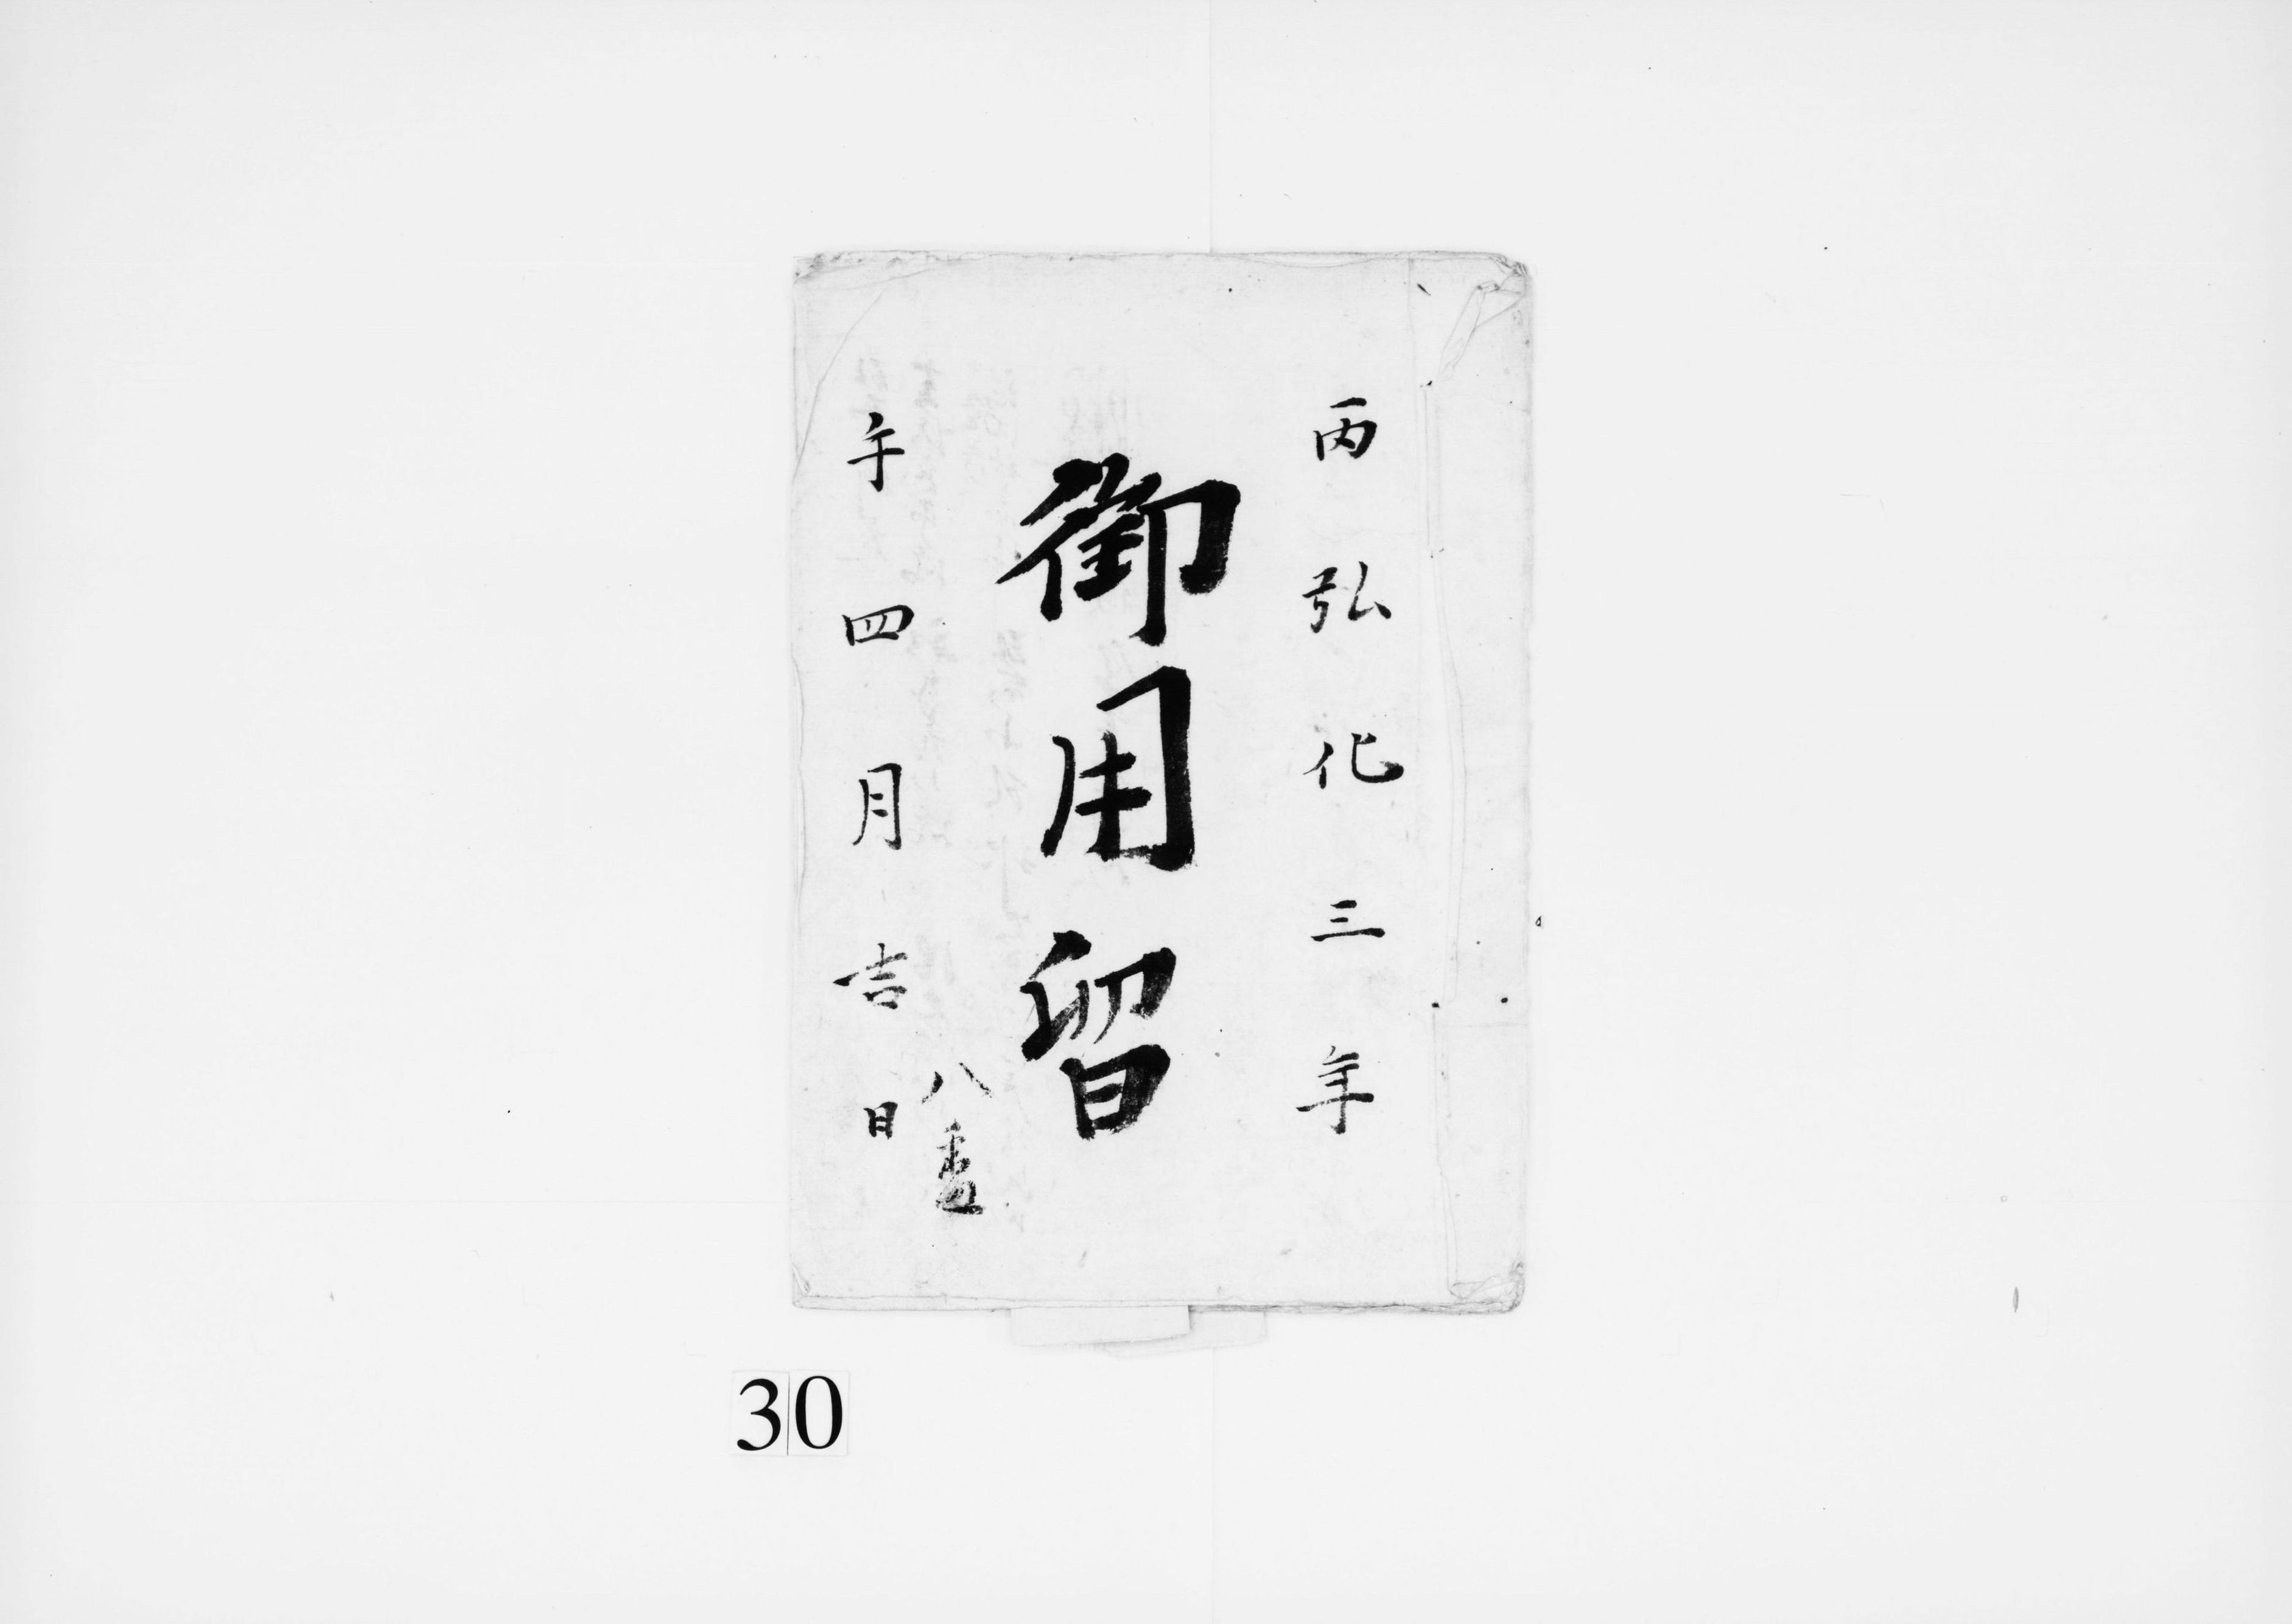 丙弘化三年
御用留
八番
午四月吉日
30